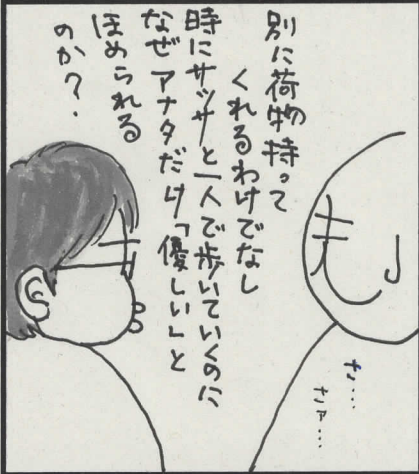 別に荷物持って
くれるわけでなし
時にサッサと一人で歩いていくのに
なぜアナタだけ「優しい」と
ほめられる
のか？
さ…
さァ…